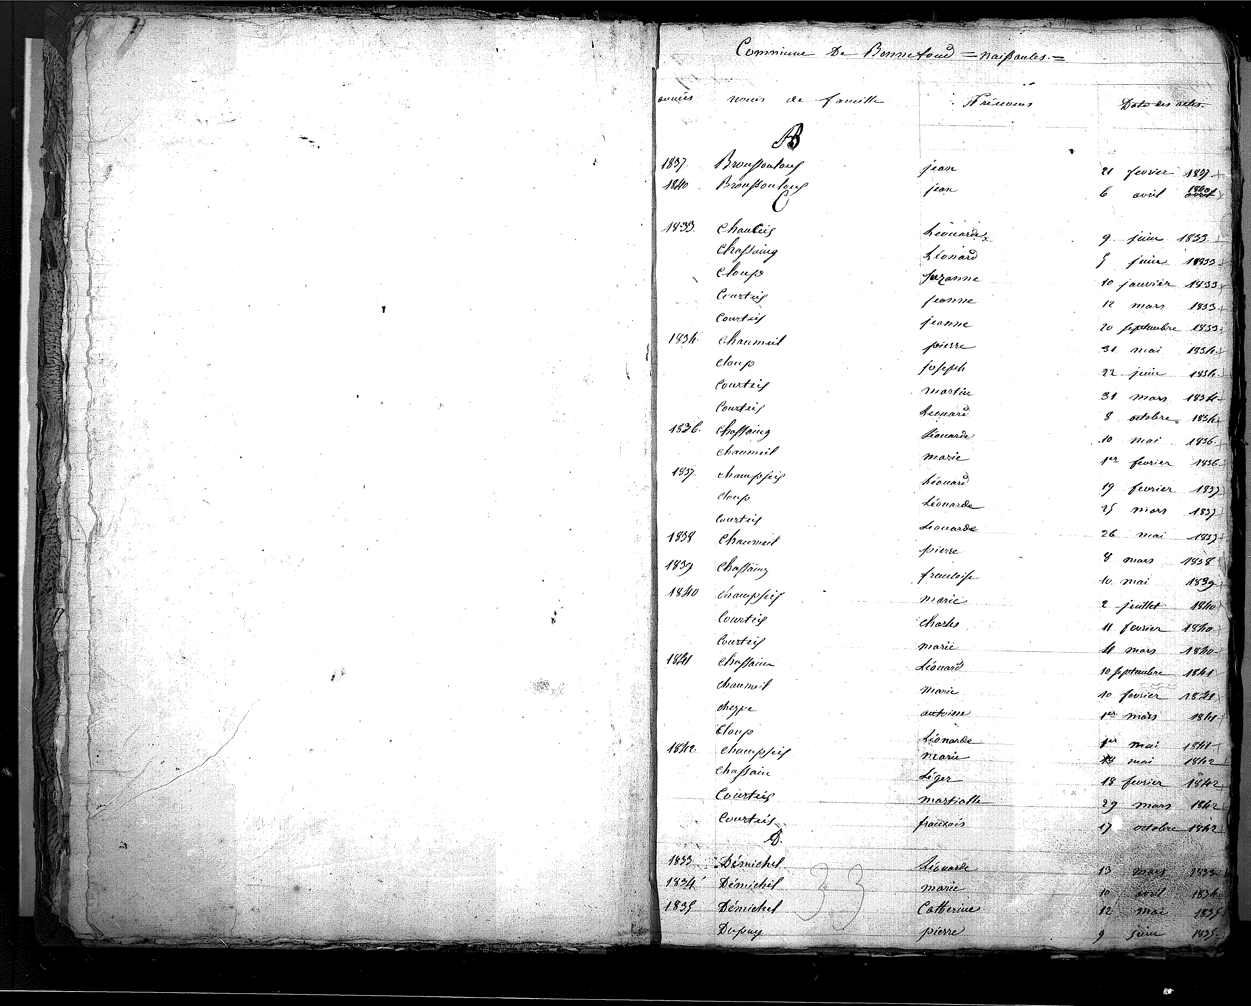 Commune De Bonnefond = naissances =
années noms de famille Prénoms Date des actes
B
1837 Broussouloux jean 21 fevrier 1837
1840 Broussouloux jean 6 avril 1840
C
1833 Chauleis Léonarde 9 juin 1833
Chassaing Léonard 5 juin 1833
Cloup suzanne 10 janvier 1833
Courteix jeanne 12 mars 1833
Courteix jeanne 20 septembre 1833
1834 Chaumeil pierre 31 mai 1834
Cloup joseph 22 juin 1834
Courteix martin 31 mars 1834
Courteix Léonard 8 octobre 1834
1836 Chassaing Léonarde 10 mai 1836
Chaumeil marie 1er fevrier 1836
1837 Champseix Léonard 19 fevrier 1837
Cloup Léonarde 25 mars 1837
Courteix Léonarde 26 mai 1837
1838 Chaumeil pierre 8 mars 1838
1839 Chassaing francoise 10 mai 1839
1840 Champseix marie 2 juillet 1840
Courteix charles 11 fevrier 1840
Courteix marie 11 mars 1840
1841 Chassain Léonard 10 septembre 1841
Chaumeil marie 10 fevrier 1841
Cheype antoine 1er mars 1841
Cloup Léonarde 1er mai 1841
1842 Champseix marie mai 1842
Chassain Léger 18 fevrier 1842
Courteix martialle 29 mars 1842
Courteix francois 17 octobre 1842
D.
1833 Démichel Léonarde 13 mars 1833
1834 Démichel marie 10 avril 1834
1835 Démichel Catherine 12 mai 1835
Dupuy pierre 9 juin 1835
33